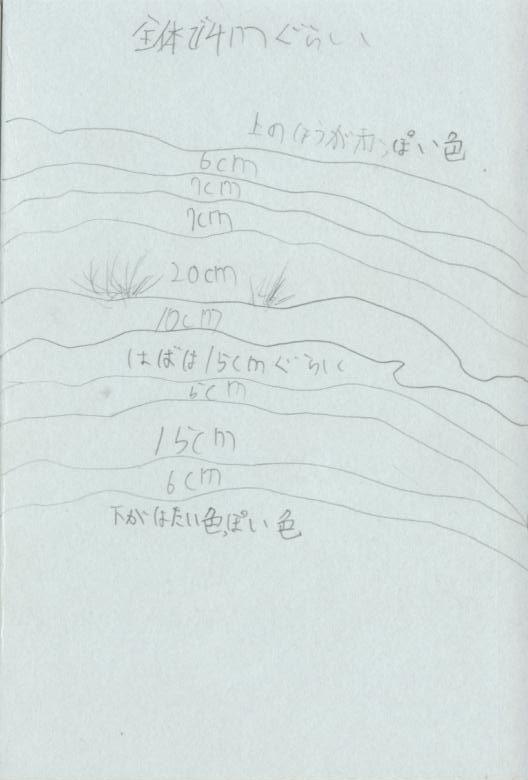 全体で4mぐらい
上のほうが赤っぽい色
6cm
7cm
7cm
20cm
10cm
はばは15cmぐらい
5cm
15cm
6cm
下がはだい色っぽい色